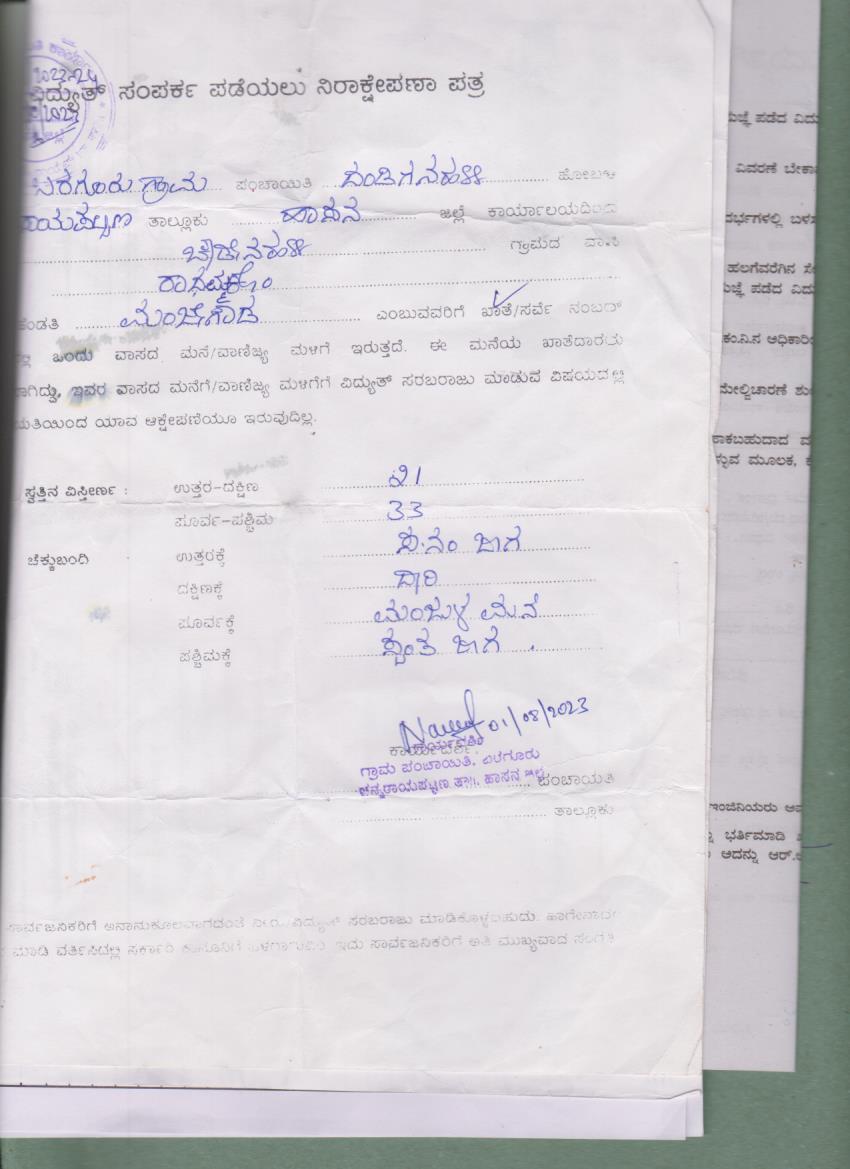 2023-24
ವಿದ್ಯುತ್ ಸಂಪರ್ಕ ಪಡೆಯಲು ನಿರಾಕ್ಷೇಪಣಾ ಪತ್ರ
ಬರಗೂರು ಗ್ರಾಮ ಪಂಚಾಯಿತಿ ದಂಡಿಗನಹಳ್ಳಿ ಹೋಬಳಿ
ರಾಯಪಟ್ಟಣ ತಾಲ್ಲೂಕು ಹಾಸನ ಜಿಲ್ಲೆ ಕಾರ್ಯಾಲಯದಿಂದ
ಚೌಡೇನಹಳ್ಳಿ ಗ್ರಾಮದ ವಾಸಿ
ಕೆಂಡತಿ ಮಂಜೇಗೌಡ ಎಂಬುವವರಿಗೆ ಖಾತೆ/ಸರ್ವೆ ನಂಬರ್
ಲ್ಲಿ ಒಂದು ವಾಸದ ಮನೆ/ವಾಣಿಜ್ಯ ಮಳಿಗೆ ಇರುತ್ತದೆ. ಈ ಮನೆಯ ಖಾತೆದಾರರು
ಆಗಿದ್ದು, ಇವರ ವಾಸದ ಮನೆಗೆ/ವಾಣಿಜ್ಯ ಮಳಿಗೆಗೆ ವಿದ್ಯುತ್ ಸರಬರಾಜು ಮಾಡುವ ವಿಷಯದಲ್ಲಿ
ಯತಿಯಿಂದ ಯಾವ ಆಕ್ಷೇಪಣೆಯೂ ಇರುವುದಿಲ್ಲ.
ಸ್ವತ್ತಿನ ವಿಸ್ತೀರ್ಣ : ಉತ್ತರ-ದಕ್ಷಿಣ 21
ಪೂರ್ವ-ಪಶ್ಚಿಮ 33
ಚೆಕ್ಕುಬಂದಿ ಉತ್ತರಕ್ಕೆ ಸ.ನಂ ಜಾಗ
ದಕ್ಷಿಣಕ್ಕೆ ದಾರಿ
ಪೂರ್ವಕ್ಕೆ ಮಂಜುಳ ಮನೆ
ಪಶ್ಚಿಮಕ್ಕೆ ಸ್ವಂತ ಜಾಗ
01/08/2023
ಕಾರ್ಯದರ್ಶಿ
ಕಾರ್ಯದರ್ಶಿ
ಗ್ರಾಮ ಪಂಚಾಯಿತಿ, ಬರಗೂರು
ಚನ್ನರಾಯಪಟ್ಟಣ ತಾ||, ಹಾಸನ ಜಿಲ್ಲೆ
ಪಂಚಾಯತಿ
ತಾಲ್ಲೂಕು
ಸಾರ್ವಜನಿಕರಿಗೆ ಅನಾನುಕೂಲವಾಗದಂತೆ ನೀರು/ವಿದ್ಯುತ್ ಸರಬರಾಜು ಮಾಡಿಕೊಳ್ಳಬಹುದು. ಹಾಗೇನಾದರೂ
ಮಾಡಿ ವರ್ತಿಸಿದಲ್ಲಿ ಸರ್ಕಾರಿ ಇದು ಸಾರ್ವಜನಿಕರಿಗೆ ಅತಿ ಮುಖ್ಯವಾದ ಸಂಗತಿ
ಪಡೆದ ವಿದು
ವಿವರಣೆ ಬೇಕಾ
ದರ್ಭಗಳಲ್ಲಿ ಬಳಸ
ಹಲಗೆವರೆಗಿನ ಸೇ
ಪಡೆದ ವಿದು
ಕಂ.ನಿ.ನ ಅಧಿಕಾರಿ
ಮೇಲ್ವಿಚಾರಣೆ ಶು
ಹಾಕಬಹುದಾದ ವ
ಸ್ಸುವ ಮೂಲಕ, ಕ
ಇಂಜಿನಿಯರು ಅವ
ಭರ್ತಿಮಾಡಿ
ಅದನ್ನು ಆರ್.